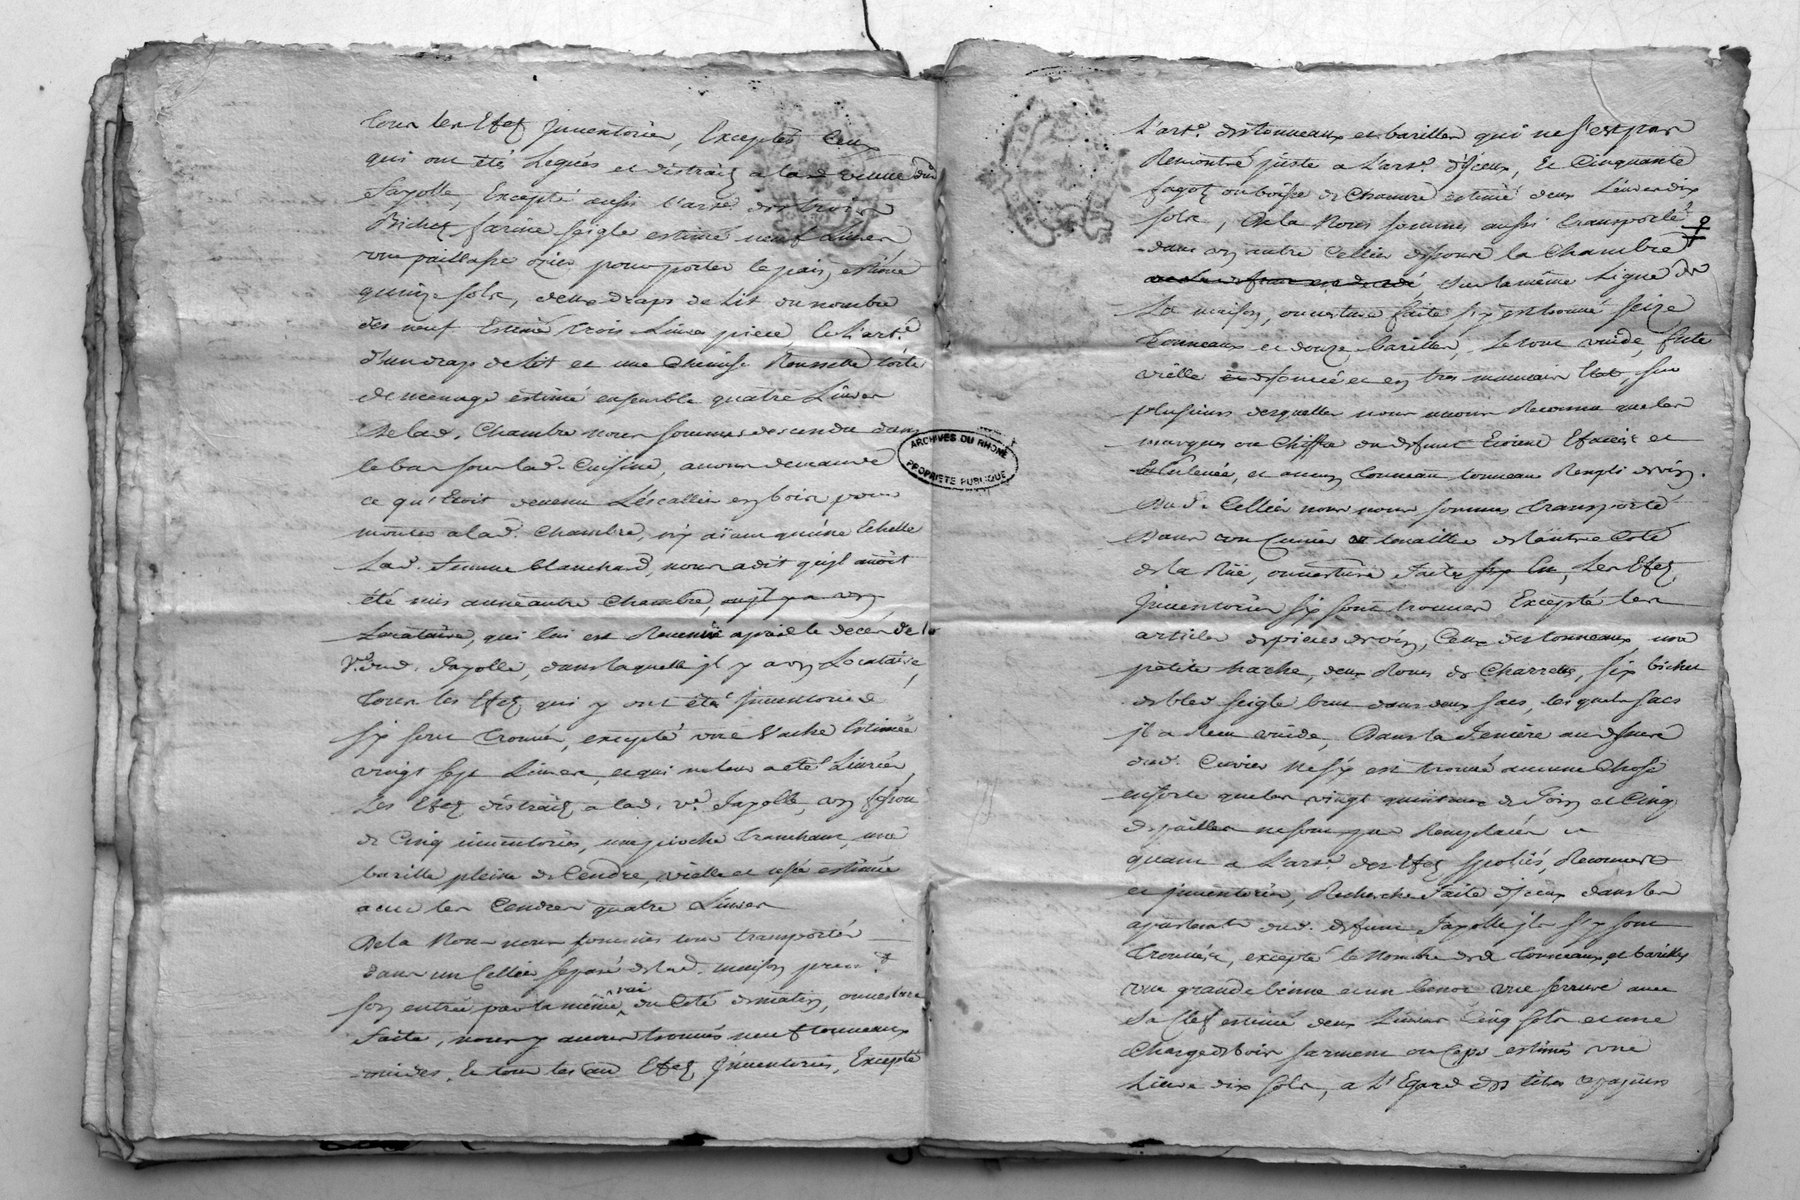 Tous les Efet Jnventoriés, Exceptés Ceux
qui ont été Legués et distrait a lad. veuve dud.
Fayolle, Excepté aussi l'art. des trois
Bichet farine seigle estimé neuf Livres
une paillasse osier pour porter le pain, estimé
quinze sols, deux draps de Lit du nombre
des neuf Estimé trois Livres piece, & L'art.
d'un drap de Lit et une Chemise Roussette toile
de menage estimé ensemble quatre Livres
De lad. Chambre nous sommes descendu dans
le bas sous lad. Cuisine, avons demandé
ce qu'Etoit devenu L'éscallier en bois pour
monter a lad. Chambre, n'y aïant qu'une Echelle
Lad. femme blanchard, nous a dit qu'jl avoit
été mis a une autre Chambre, ou jl y a un
Locataire, qui lui est Revenüe après le decés de la
Ve. dud. Fayolle, dans laquelle jl y a un Locataire,
tous les Efet qui y ont été Jnventorié
s'y sont trouvés, excepté une Vache Estimée
vingt sept Livres, et qui ne leur a été Livrée,
Les Efet distrait a lad. ve. Fayolle, un
de Cinq inventoriés, une pioche tranchant, une
barille pleine de Cendre, vielle et usée estimée
avec les Cendres quatre Livres
De la Nous nous sommes tous transportés
dans un Cellier separé de lad. maison pren.t
son entrée par la même rüe du Coté de matin, ouverture
faite, nous y avons trouvés neuf tonneaux
vuides, & tous les Efet Jnventoriés, Excepté
L'art. des tonneaux et barilles qui ne s'est pas
Rencontré juste a L'art. d'jceux, Et Cinquante
fagot ou de Chanvre estimé deux Livres dix
sols, De la Nous sommes aussi transporté
dans un autre Cellier dessous la Chambre
sur la même Ligne de
La maison, ouverture faite s'y est trouvé seize
tonneaux et douze barilles, le tout vuide, fute
vielle et en tres mauvais Etat, sur
plusieurs desquelles nous avons Reconnu que les
marques ou Chiffre du defunt Etoient Efacée et
Enlevée, et aucun tonneau tonneaux Rempli de vin.
Du d. Cellier nous nous sommes transporté
Dans un Cuvier de lautre Coté
de la Rüe, ouverture faite Les Efet
Jnventoriés s'y sont trouvés Excepté les
articles de pieces de vin, Ceux des tonneaux, une
petite hache, deux Roues de Charrette, six bichet
de bled seigle brut dans deux sacs, les quels sacs
jl a Rem vuide, Dans la feniere au dessus
dud. Cuvier Ne s'y est trouvé aucune Chose
ensorte que les vingt quintaux de Foin et Cinq
de pailles ne sont pas Remplacés
quant a L'art. des Efet spoliés, Recouvert
et jnventoriés, Recherche faite d'jceux dans les
apartemts. dud. defunt Fayolle jls s'y sont
trouvée, excepté le Nombre de tonneaux, et barilles
une grande benne et un une serrure avec
sa Clef estimé deux Livres Cinq sols et une
Charge de bois sarment ou Ceps estimés une
Livre dix sols, a L'Egard des
ARCHIVES DU RHONE
PROPRIETE PUBLIQUE